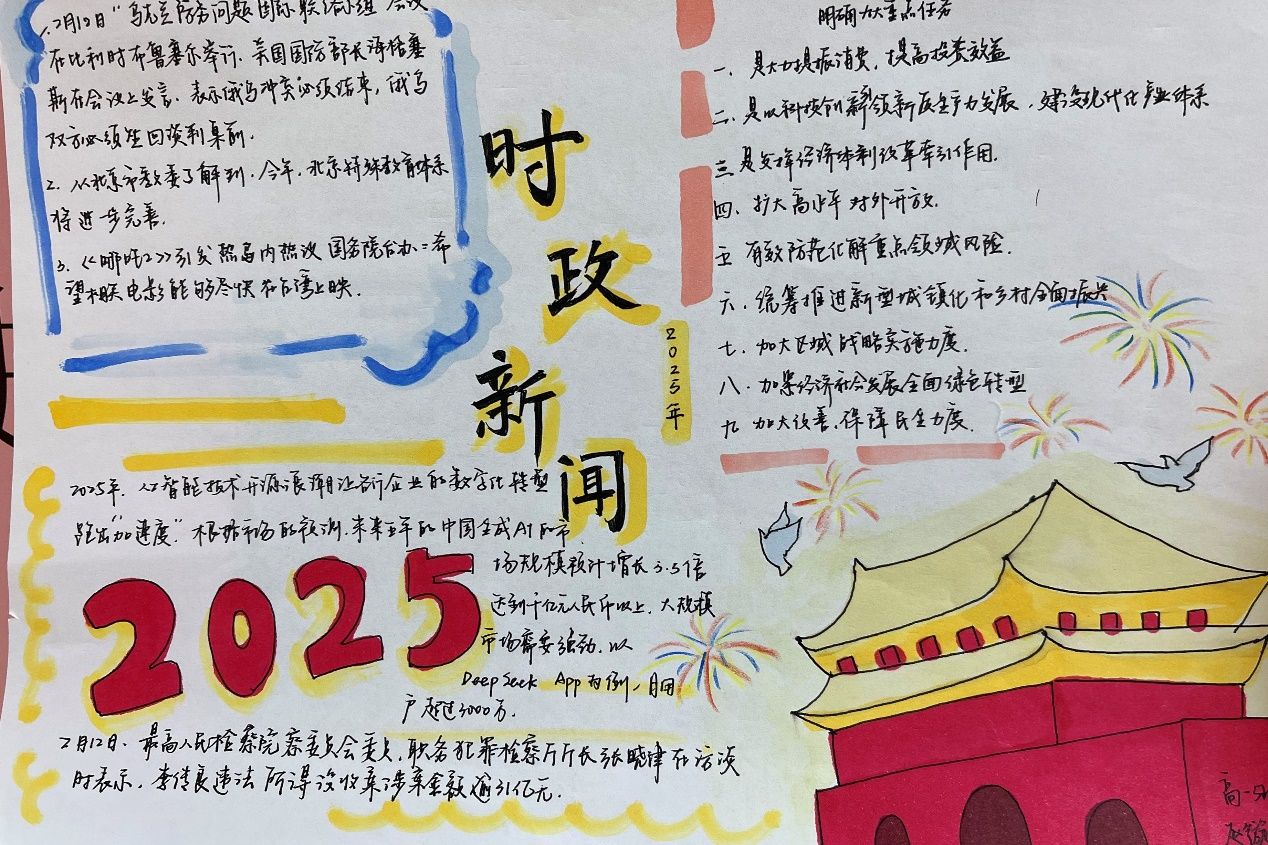 1.2月12日"乌克兰防务问题国际联络小组"会议
在比利时布鲁塞尔举行.美国国防部长海格塞
斯在会议上发言.表示俄乌冲突必须结束,俄乌
双方必须坐回谈判桌前.
2.从北京市教委了解到.今年,北京特殊教育体系
将进一步完善.
3.《哪吒2》引发热岛内热议 国务院台办:希
望相关电影能够尽快在台湾上映.
时
政
新
闻
2025年
明确九大重点任务
一、是大力提振消费,提高投资效益
二、是以科技创新引领新质生产力发展,建设现代化产业体系
三是发挥经济体制改革牵引作用.
四、扩大高水平对外开放.
五 有效防范化解重点领域风险.
六、统筹推进新型城镇化和乡村全面振兴
七、加大区域战略实施力度.
八、加柴经济社会发展全面绿色转型
九 加大改善.保障民生力度.
2025年.人工智能技术开源浪潮让各行企业的数字化转型
跑出"加速度".根据市场的预测,未来五年的中国生成AI的市
2025
场规模预计增长3.5倍
达到千亿元人民币以上.大规模
市场需要强劲.以
DeepSeek App为例,日用
户超过3000万.
2月12日、最高人民检察院察委员会委员,职务犯罪检察厅厅长张晓津在访谈
时表示,李传良违法所得没收案涉案金额逾31亿元.
高一